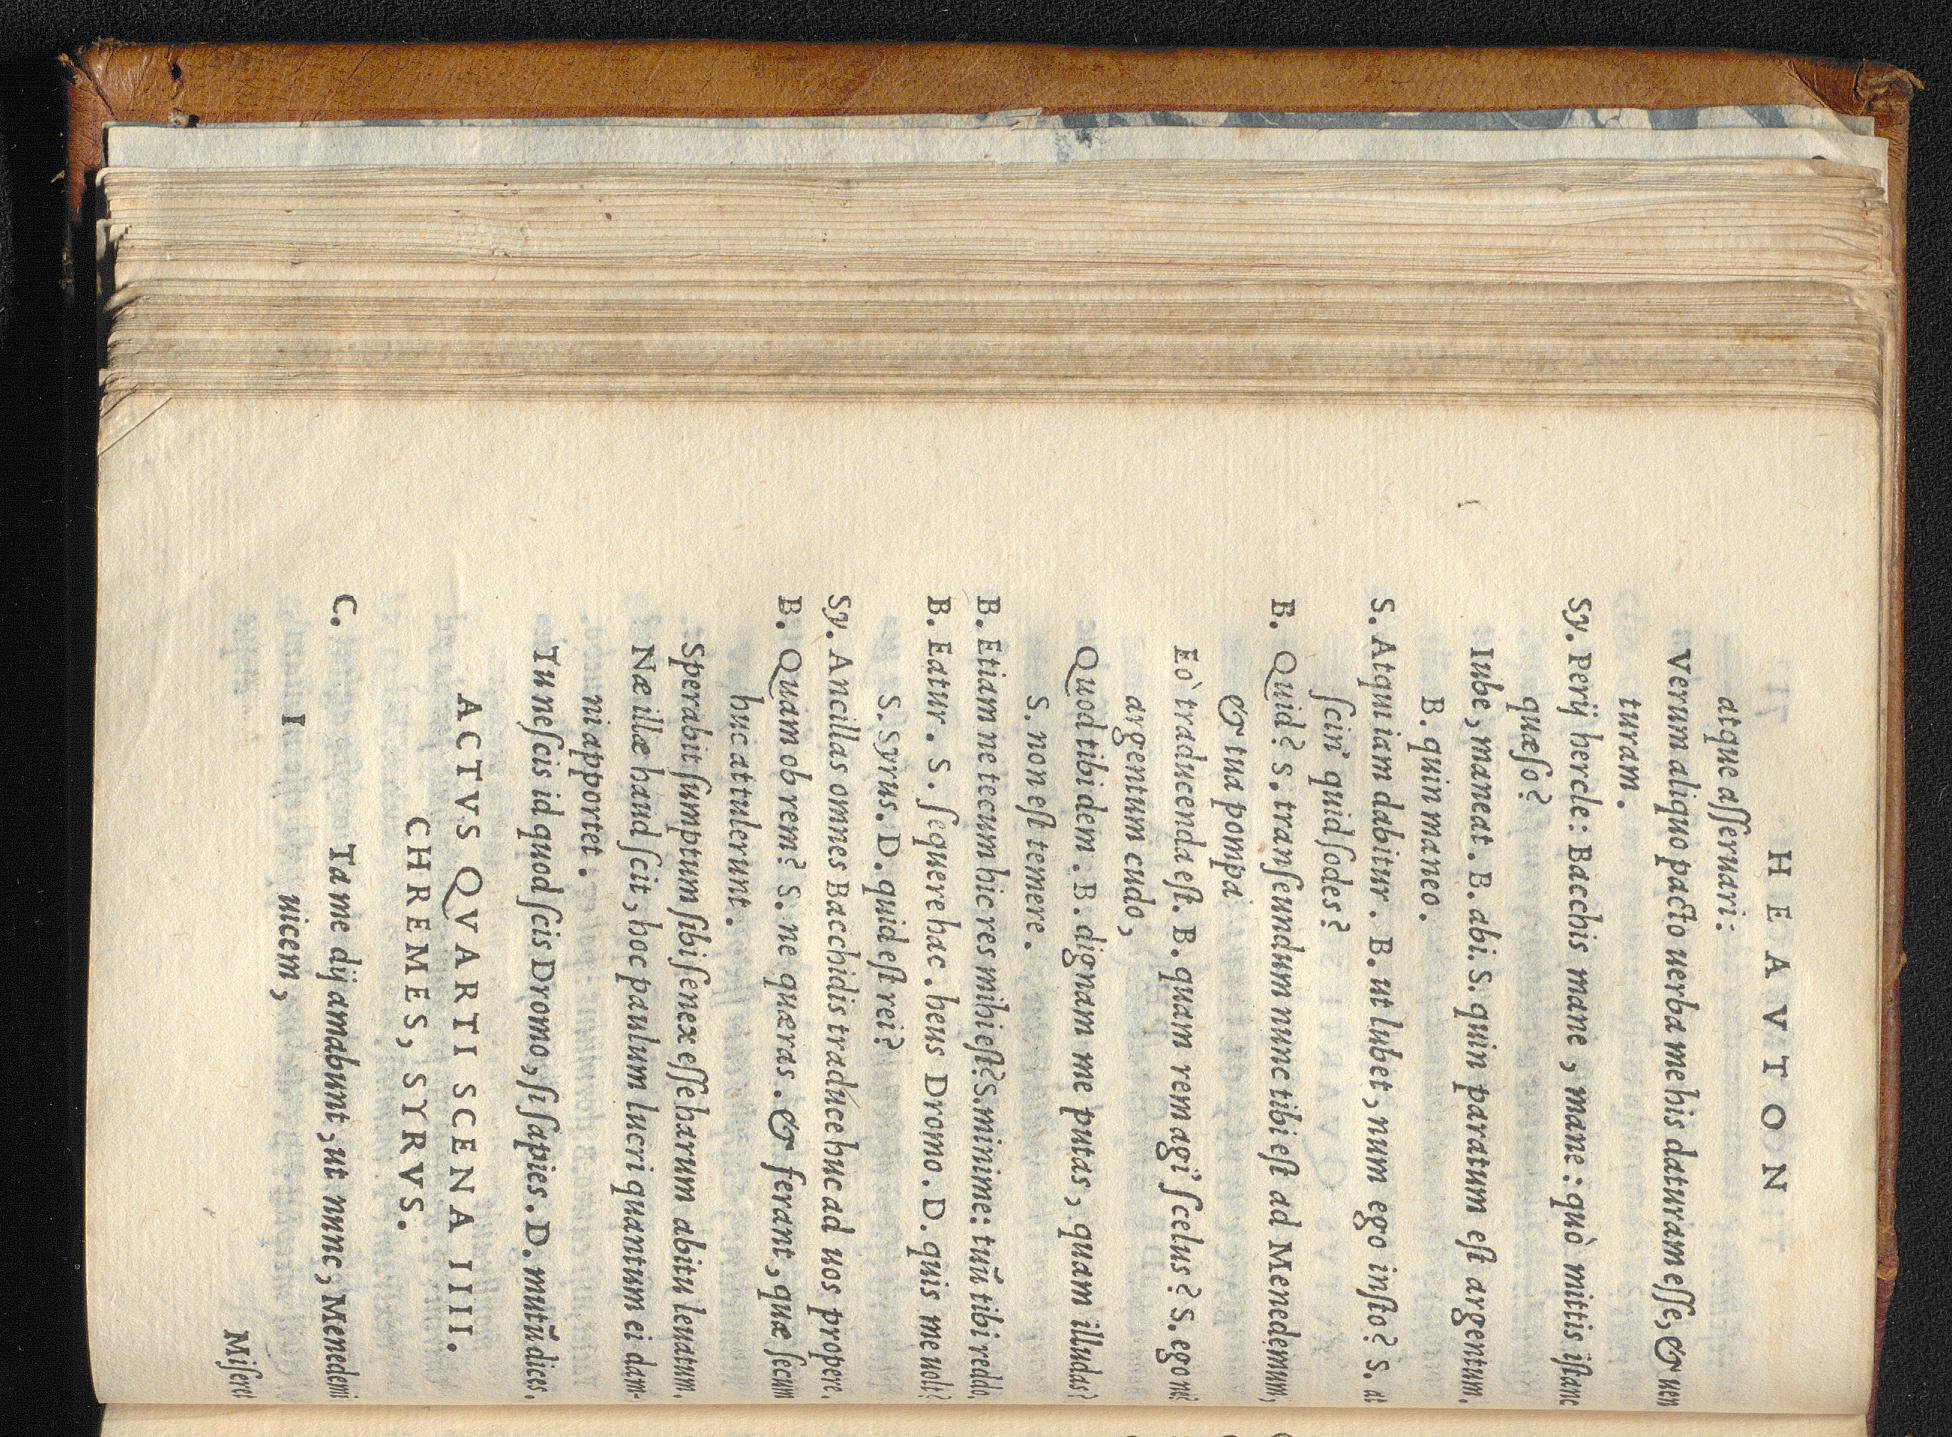 HEAVTON
atque aſſeruari:
Verum aliquo pacto uerba me his daturam eſſe, & uen
turam.
Sy. Perij hercle: Bacchis mane, mane: quò mittis iſtanc
quæſo?
Iube, maneat. B. abi. S. quin paratum eſt argentum.
B. quin maneo.
S. Atqui iam dabitur. B. ut lubet, num ego inſto? S. at
ſcin' quid ſodes?
B. Quid? S. tranſeundum nunc tibi eſt ad Menedemum,
& tua pompa
Eò traducenda eſt. B. quam rem agi' ſcelus? S. ego nē?
argentum cudo,
Quod tibi dem. B. dignam me putas, quam illudas?
S. non eſt temere.
B. Etiam ne tecum hic res mihi eſt? S. minime: tuū tibi reddo.
B. Eatur. S. ſequere hac. heus Dromo. D. quis me uolt?
S. Syrus. D. quid eſt rei?
Sy. Ancillas omnes Bacchidis traduce huc ad uos propere.
B. Quam ob rem? S. ne quæras. & ferant, quæ ſecum
huc attulerunt.
Sperabit ſumptum ſibi ſenex eſſe harum abitu leuatum.
Næ illæ haud ſcit, hoc paulum lucri quantum ei dam-
ni apportet.
Tu neſcis id quod ſcis Dromo, ſi ſapies. D. mutū dices.
ACTVS QVARTI SCENA IIII.
CHREMES, SYRVS.
C. Ita me dij amabunt, ut nnnc, Menedemi
uicem,
Miſeret